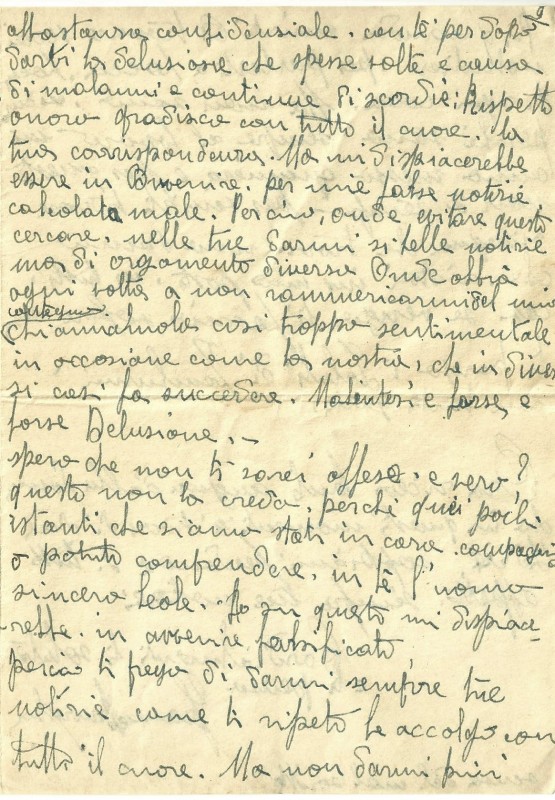 abbastanza confidensiale. con tè per dopo
darti la delusione che spesse volte e causa
di malanni e continue discordie: Rispetto
onoro gradisco con tutto il cuore. la
tua corrispondensa. Ma mi dispiacerebbe
essere in avvenire. per mie false notizie
calcolata male. Perciò, onde evitare questo
cercare. nelle tue darmi si delle notizie
ma di orgomento diverso Onde abbia
ogni volta a non rammericarmi del mio
contegno.
Chiamamola così troppo sentimentale
in occasione come la nostra, che in diver
si casi fa succedere. Malintesi e forse e
forse Delusione. –
spero che non ti sarei offeso. e vero?
questo non lo credo. perché quei pochi
istanti che siamo stati in cara compagnia
o potuto comprendere. in tè l'uomo
sincero leale. Ma in questo mi dispiace-
rebbe. in avvenire falsificato,
perciò ti prego di darmi sempre tue
notizie come ti ripeto le accolgo con
tutto il cuore. Ma non darmi più